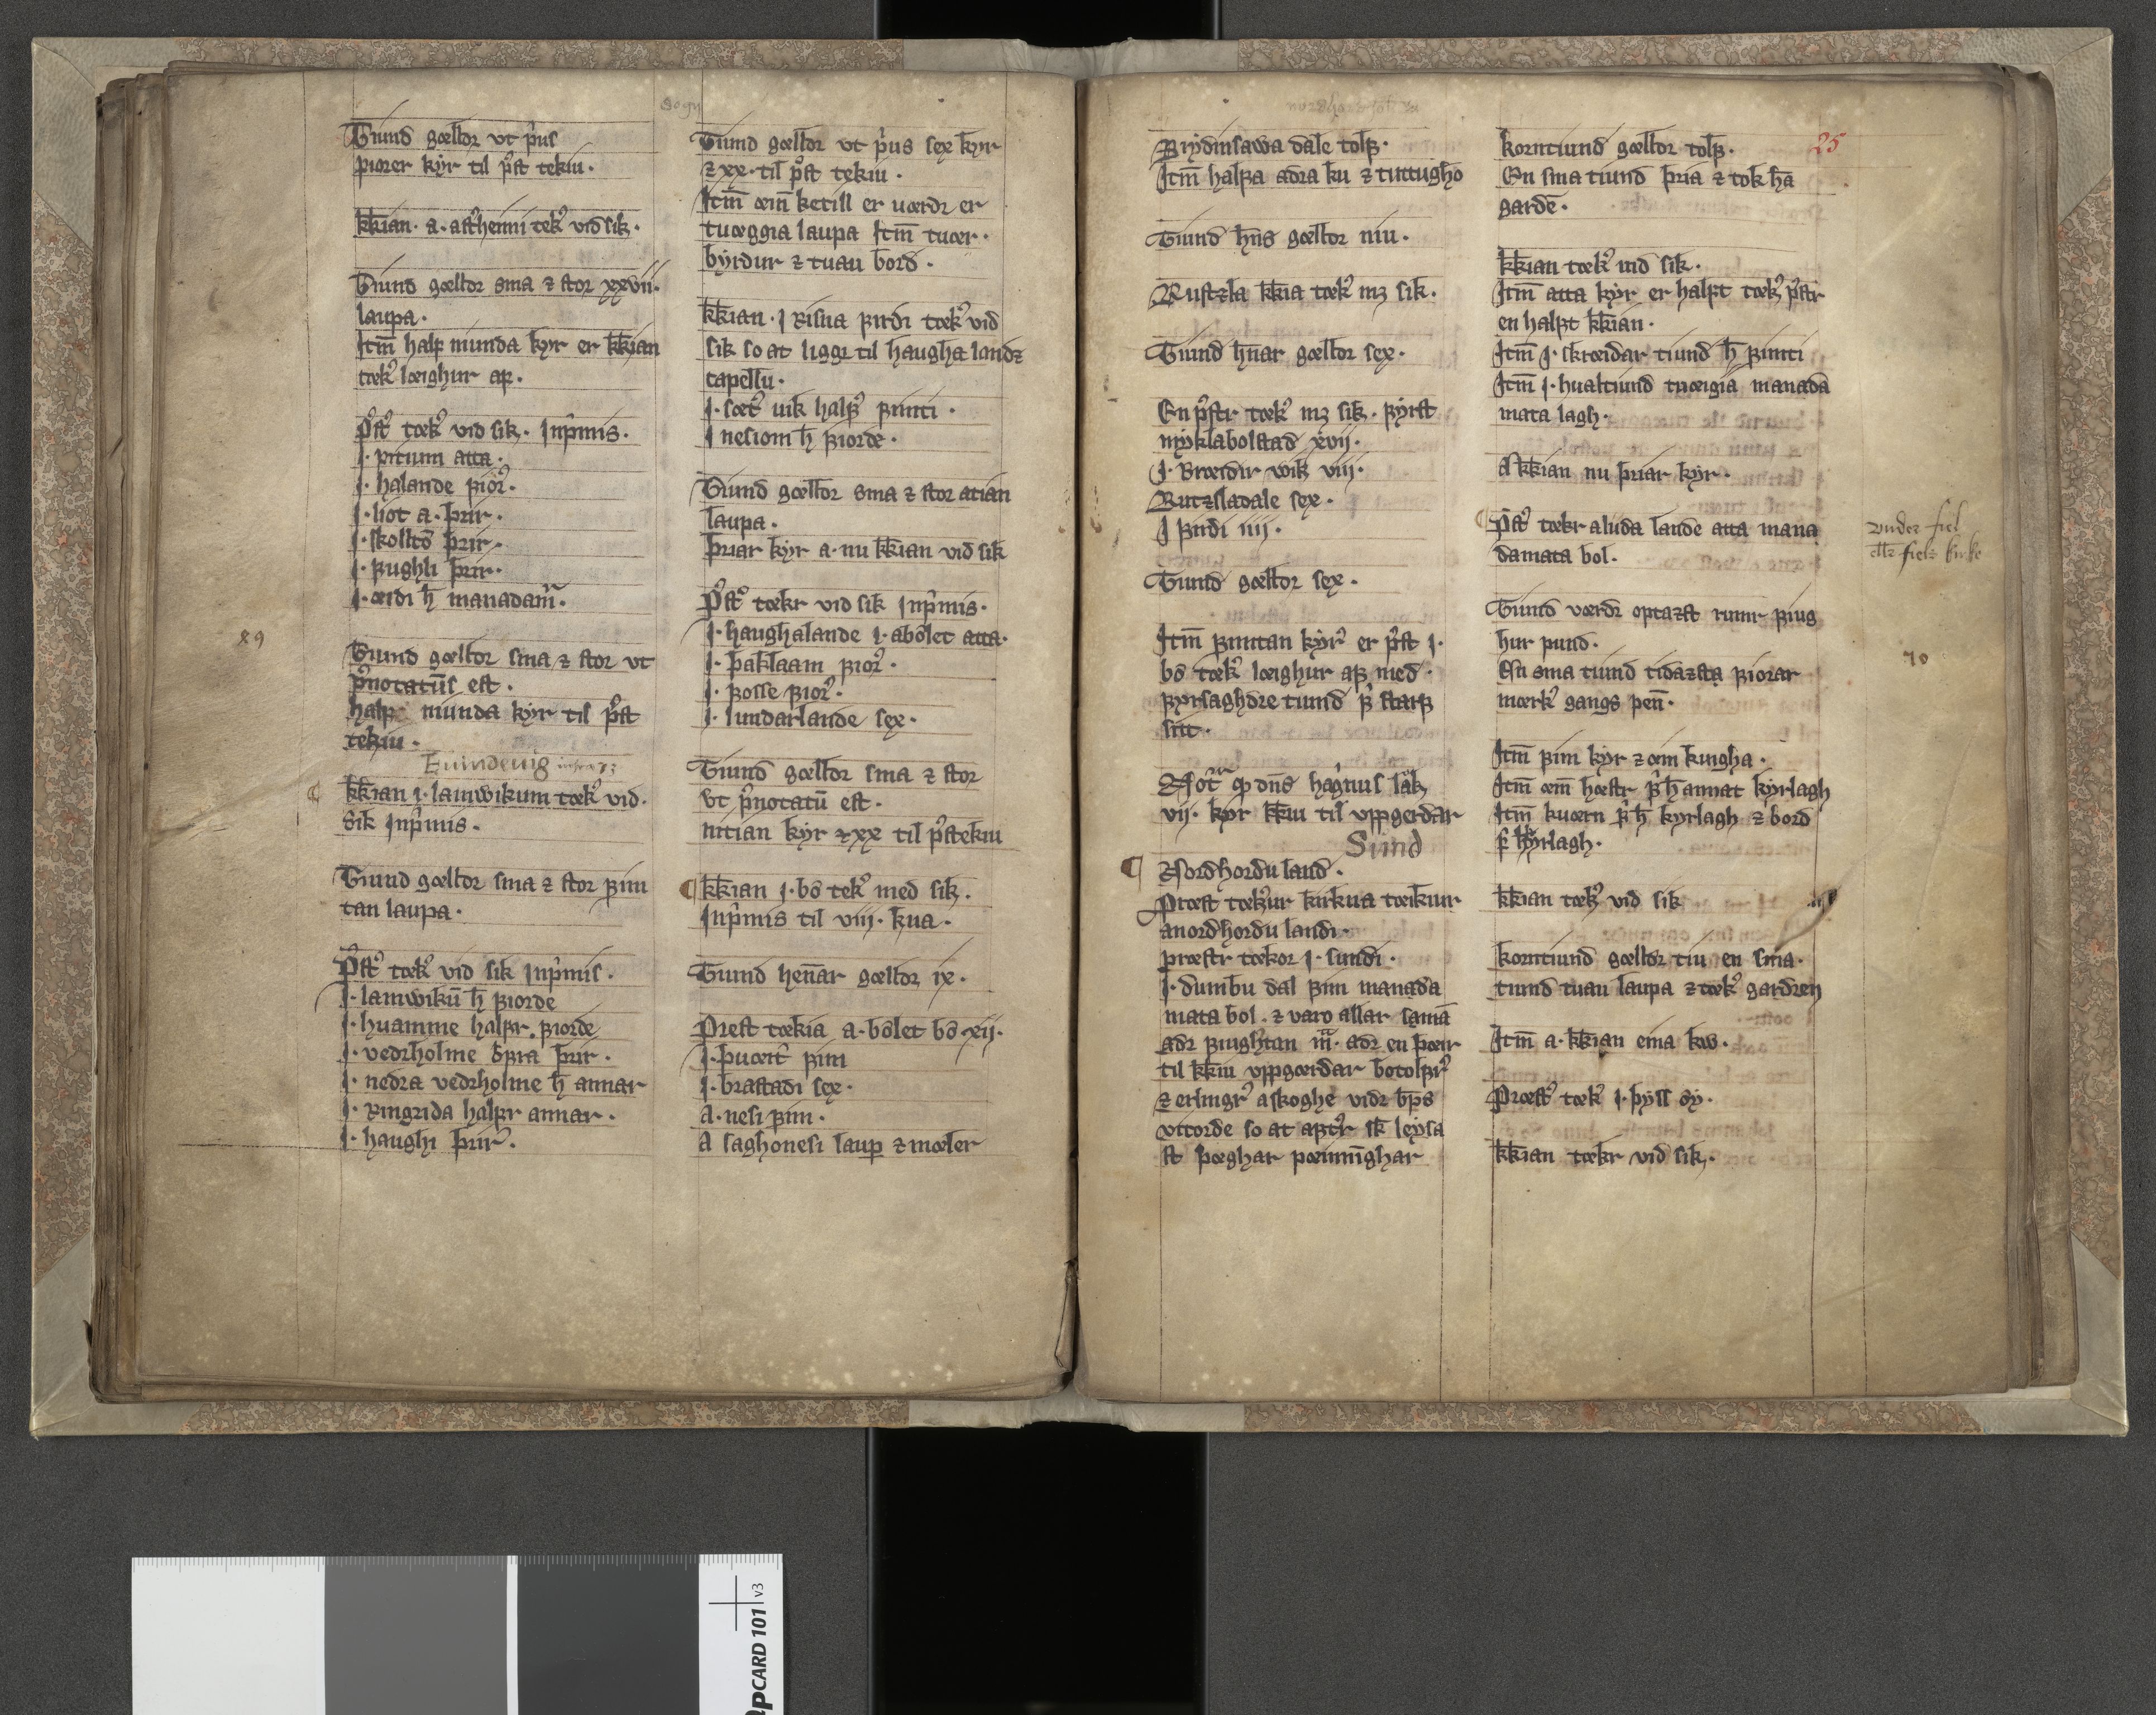 Sogn
Tiund gœlldr vt pͥus
fiorer kyr til p͛st tekiu.
kk̅ian. a. ast͛heimi tek͛ vid sik.
Tiund gœlldr sma ⁊ stor xxvii.
laupa.
Jtm̅ half niunda kyr er kk̅ian
tœk͛ lœighur af.
P͛st͛ tœk͛ vid sik. Jnp͛mis.
J. fitium atta.
J. halande fior͛.
J. liot a. þrir.
J. skollto þrir.
J. fughli þrir.
J. œrdi h̅ manadam̅.
89
Tiund gœlldr sma ⁊ stor vt
p͛notatu̅s est.
half niunda kyr til p͛st
tekiu.
Euindevig
kk̅ian J. lamwikum tœk͛ vid.
sik Jnp͛mis.
Tiund gœlldr sma ⁊ stor fim
tan laupa.
P͛st͛ tœk͛ vid sik Jnp͛mis.
J. lamwiku̅ h̅ fiorde
J. huamme halfr. fiorde
J. vedrholme ofra þrir.
J. nedra vedrholme h̅ annar
J. Ringrida halfr annar.
J. haughi þrir͛.
Tiund gœlldr vt pͥus sex kyr
⁊ xx. til p͛st tekiu.
Jtm̅ œin̅ ketill er uœrdr er
tuœggia laupa Jtm̅ tuœr.
byrdur ⁊ tuau bord.
kk̅ian. J Risna firdi tœk͛ vid
sik so at liggr til haugha landz
capellu̅.
J. sœt͛ uik half͛ fimti.
J nesiom h̅ fiorde.
Tiund gœlldr sma ⁊ stor atian
laupa.
þriar kyr a. nu kk̅ian vid sik
P͛st͛ tœkr vid sik Jnp͛mis.
J. haughalande J. abólet atta.
J. þaklaam fior͛.
J. fosse fior͛.
J. sundarlande sex.
Tiund gœlldr sma ⁊ stor
vt p͛notatu̅ est.
nitian kyr ⁊ xx til p͛stekiu
kk̅ian J. bó tek͛ med sik.
Jnp͛mis til viij. kua.
Tiund hen̅ar gœlldr ix.
Prest tœkia a. bólet bó xij.
J. þuœit͛ fim
J. brastadi sex.
a. nesi fim.
A saghonesi laup ⁊ mœler
25
Brydinsawa dale tolf.
Jtm̅ halfa adra ku ⁊ tuttugh̅o
Tiund h̅ns gœlldr niu.
Rustzla kk̅ia tœk͛ mz sik.
Tiund hn̅ar gœlldr sex.
En p͛str tœk͛ mz sik. fyrst
myklabolstad xvij.
J. Brœidir wik viij.
Rutzsladale sex.
J firdi iiij.
Tiund gœlldr sex.
Jtm̅ fimtan kyr͛ er p͛st J.
bó tœk͛ lœighur af med.
fyrsaghdre tiund f͛ starf
sitt.
Not͛ ꝙ dn̅s hagnus lak
vij. kyr kk̅iu til vppgerdar
Sund
Nordhordu land.
Prœst tœk͛ur kirkna tœikiur
a nordhordu landi.
prœstr tœkor J. sundi.
J. dumbu dal fim manada
mata bol. ⁊ varo allar sama̅
adr fiughtan m̅. adr en þœir
til kk̅iu vppgœrdar botolfr͛
⁊ erlingr͛ a skoghe vidr bp̅s
vitorde so at aft͛r sk̅ leysa
st þœghar pœninn̅ghar
korntiund gœlldr tolf.
En sma tiund þria ⁊ tok ha̅
garde̅.
kk̅ian tœk͛ uid sik.
Jtm̅ atta kyr er halft tœk͛ p͛str
en halft kk̅ian.
Jtm̅ J. skrœidar tiund h̅ fimti
Jtm̅ J. hualtiund tuœigia manada̅
mata lagh.
A kk̅ian nu þriar kyr.
P͛st͛ tœkr a luda lande atta mana
damata bol.
Vnder fiel
ell͛ fiels kirke
Tiund vœrdr optazst tuttr fiug
hur pund.
70
En sma tiund tidazsta fiorar
mœrk͛ gangs pen̅.
Jtm̅ fim kyr ⁊ œin kuigha.
Jtm̅ œin̅ hœstr f͛ h̅ annat kyrlagh
Jtm̅ kuœrn f͛ h̅ kyrlagh ⁊ bord
f͛ h̅ kyrlagh.
kk̅ian tœk͛ vid sik
korntiund gœlldr tiu en sma.
tiund tuau laupa ⁊ tœk͛ gardren
Jtm̅ a. kk̅ian eina kw.
Prœst͛ tœk͛ J. þyss óy.
kk̅ian tœkr vid sik.